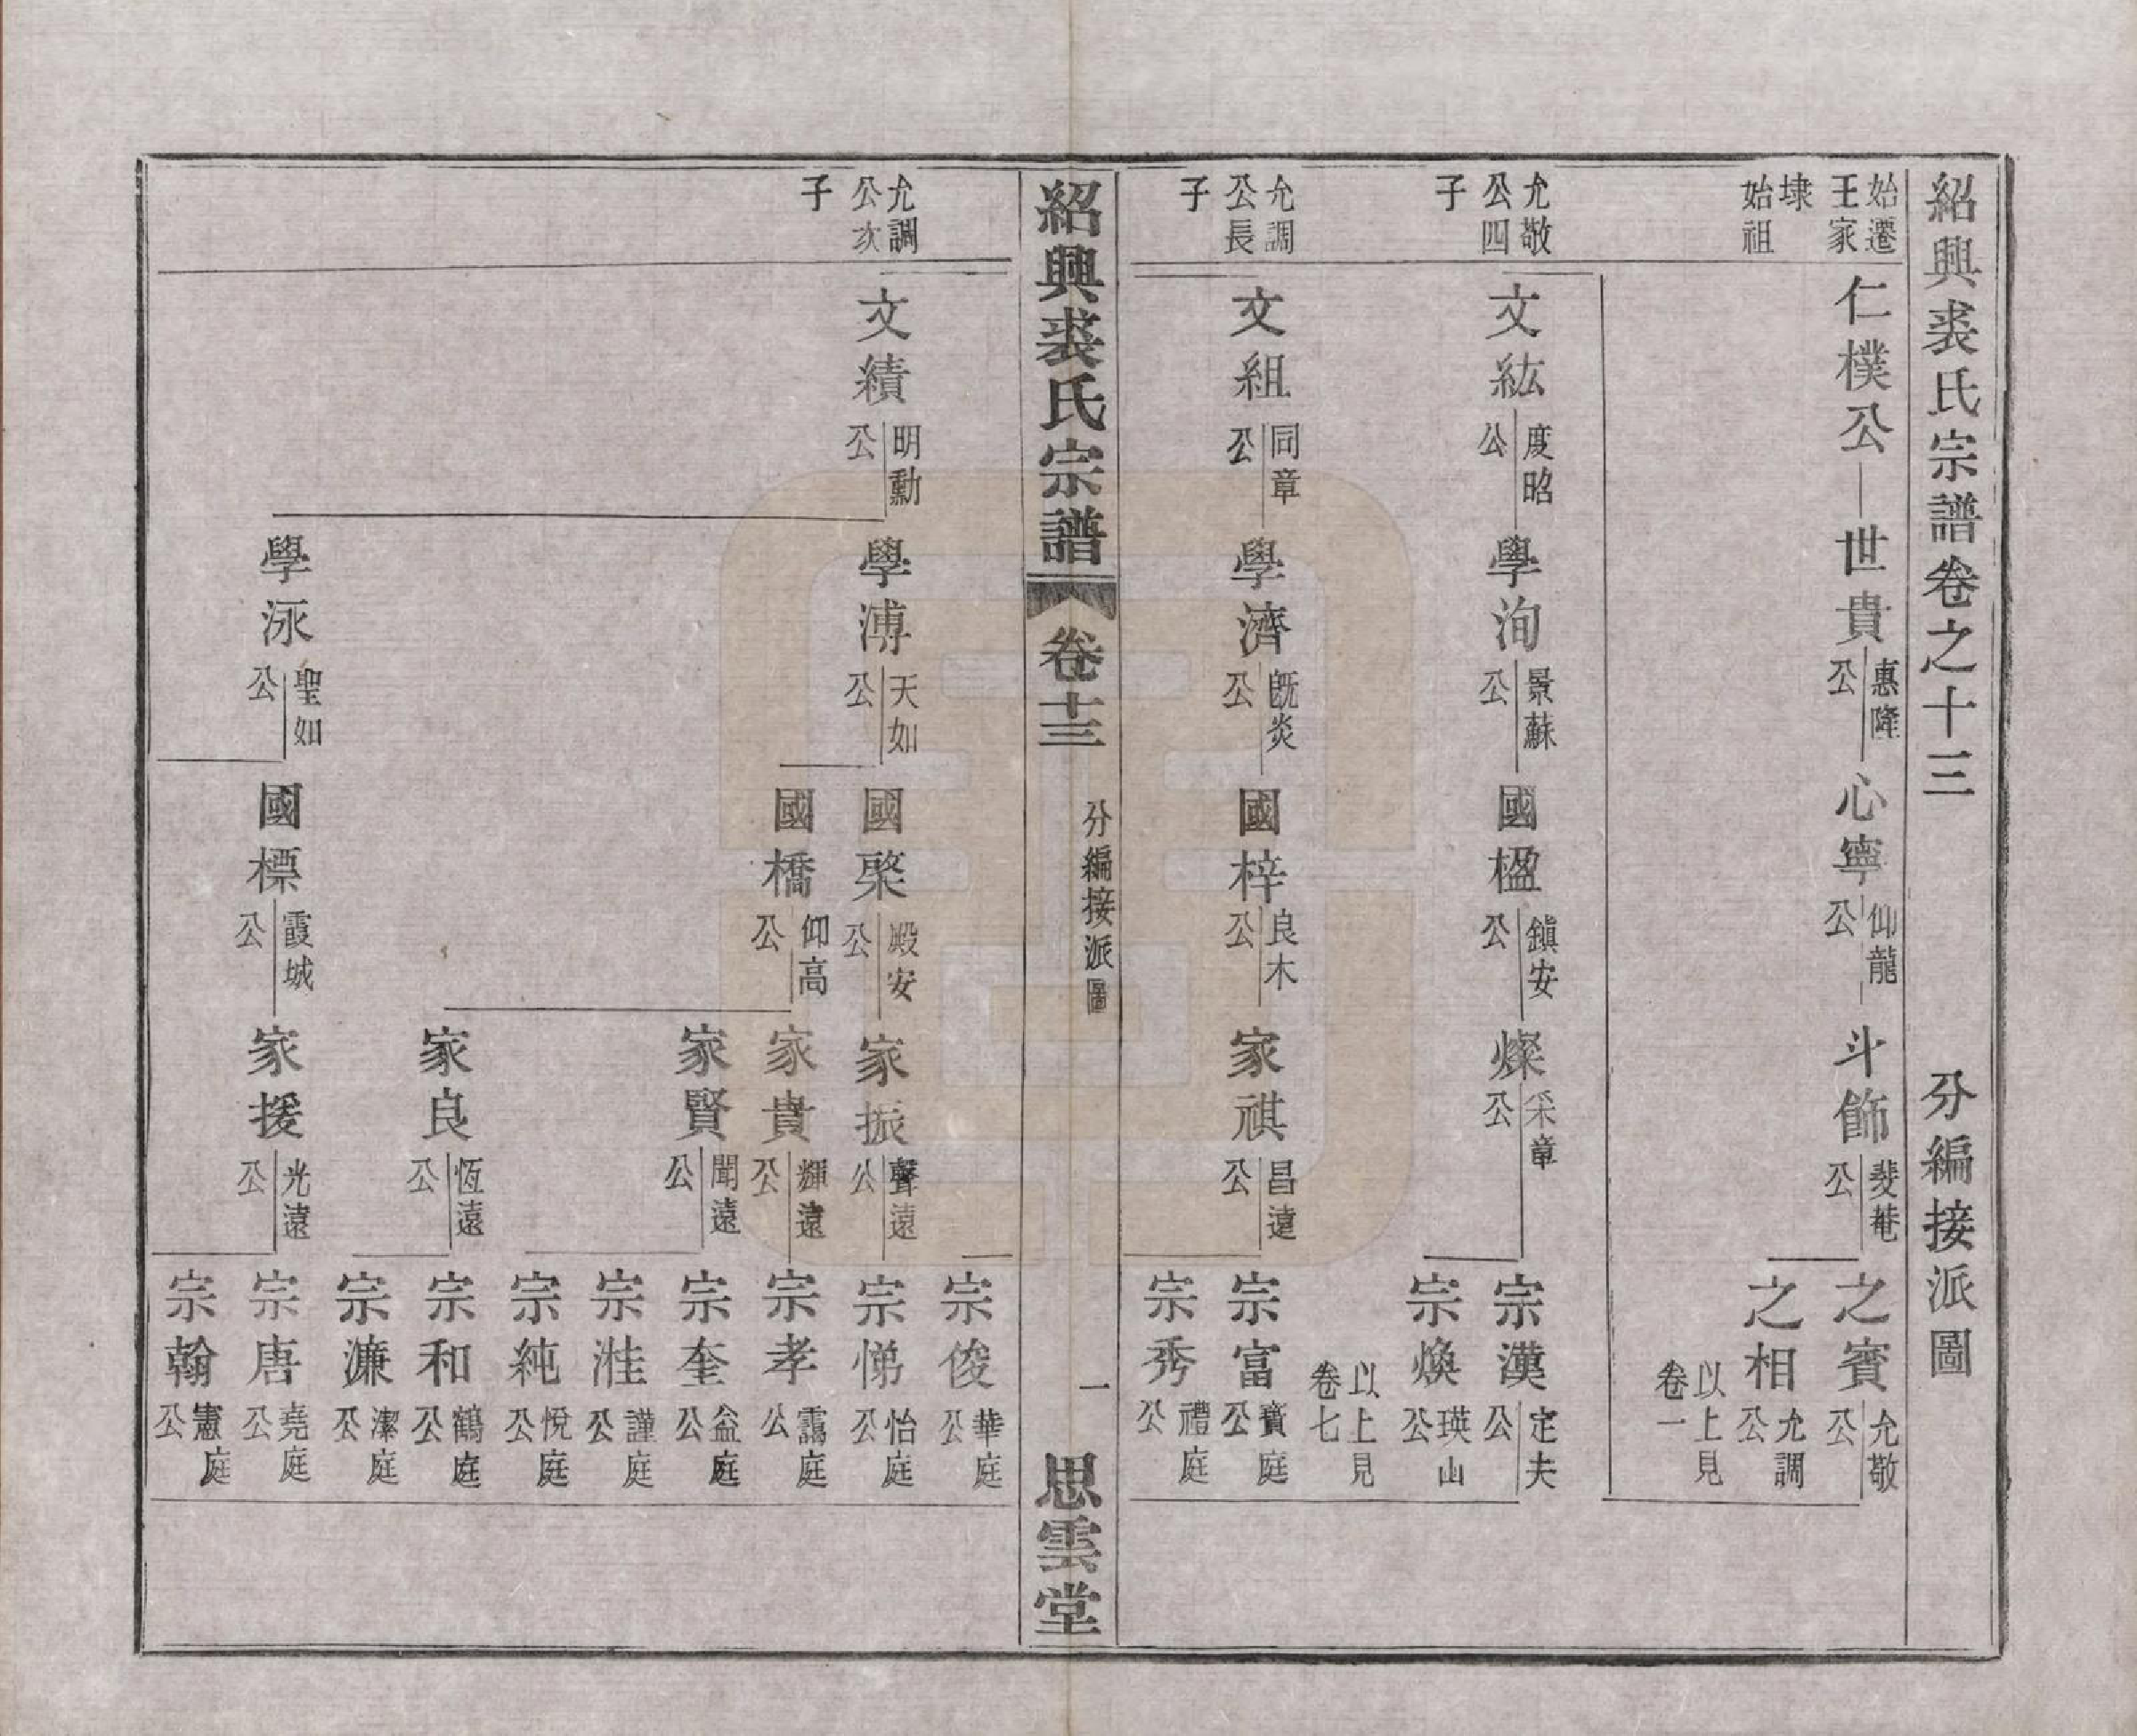 紹興裘氏宗譜卷之十三 分編接派圖
始遷王家埭始祖
仁樸公
世貴 惠隆公
心寧 仰龍公
斗飾 斐菴公
之賓 允敬公
之相 允調公
以上見卷一
允敬公四子
文紘 度昭公
學洵 景蘇公
國楹 鎮安公
燦 采章公
宗漢 定夫公
宗煥 瑛山公
以上見卷七
允調公長子
文組 同章公
學濟 既炎公
國梓 良木公
家祺 昌遠公
宗富 賓庭公
宗秀 禮庭公
紹興裘氏宗譜 卷十三 分編接派圖 一 思雲堂
宗俊 華庭公
允調公次子
文績 明勳公
學溥 天如公
國棨 殿安公
家振 聲遠公
宗悌 怡庭公
國橋 仰高公
家貴 輝遠公
宗孝 靄庭公
家賢 聞遠公
宗奎 益庭公
宗溎 謹庭公
宗純 悅庭公
家良 恆遠公
宗和 鶴庭公
宗濂 潔庭公
學泳 聖如公
國標 霞城公
家援 光遠公
宗唐 堯庭公
宗翰 憲庭公